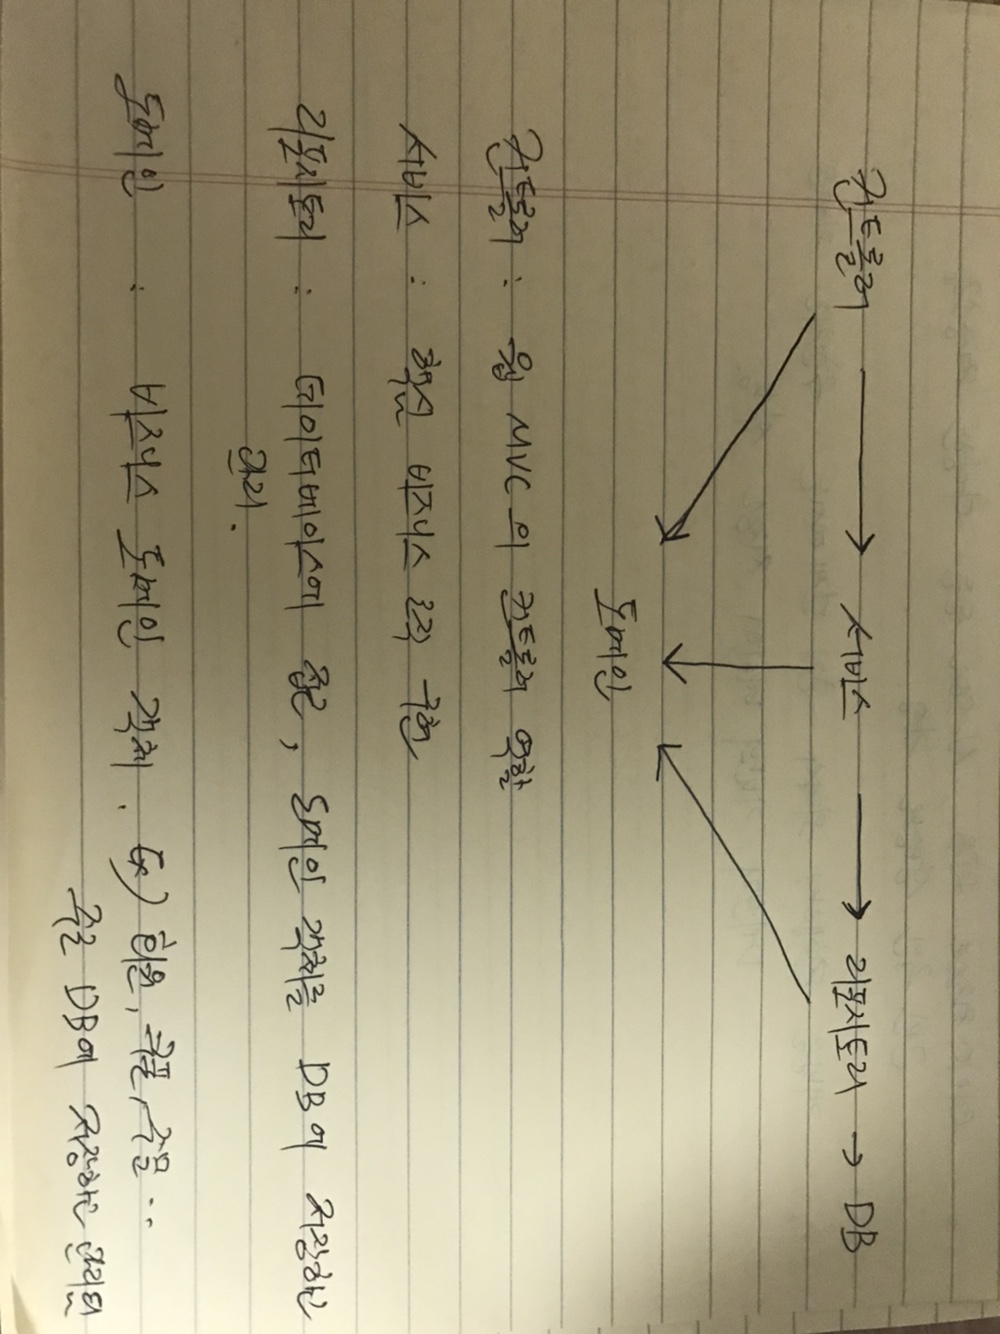 컨트롤러 → 서비스 → 리포지토리 → DB
도메인
컨트롤러 : 웹 MVC의 컨트롤러 역할
서비스 : 핵심 비즈니스 로직 구현
리포지토리 : 데이터베이스에 접근, 도메인 객체를 DB에 저장하고
관리.
도메인 : 비즈니스 도메인 객체. Ex) 회원, 쿠폰, 주문..
주로 DB에 저장하고 관리됨